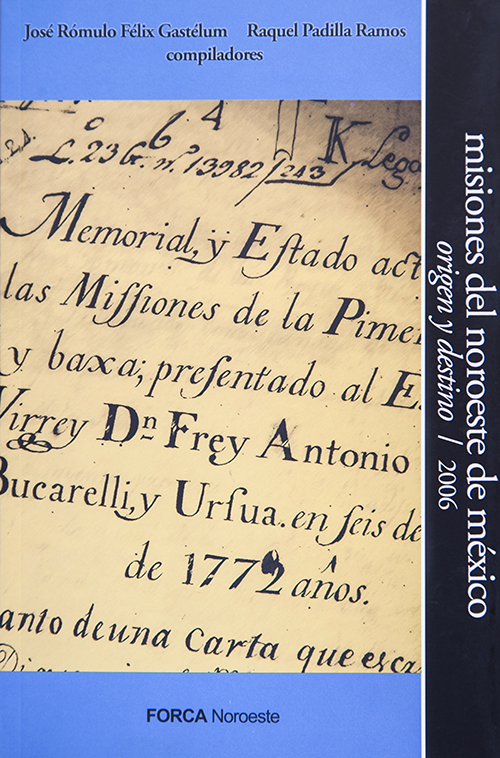 José Rómulo Félix Gastélum Raquel Padilla Ramos
compiladores
misiones del noroeste de méxico
origen y destino / 2006
4
c 6
L. 23 n.º 13982 /243 K Lega
Memorial, ÿ Eſtado act
las Miſſiones de la Pime
y baxa; preſentado al E
Virrey Dn Frey Antonio
Bucarelli, y Urſua. en ſeis de
de 1772 años.
anto de una carta que escr
FORCA Noroeste